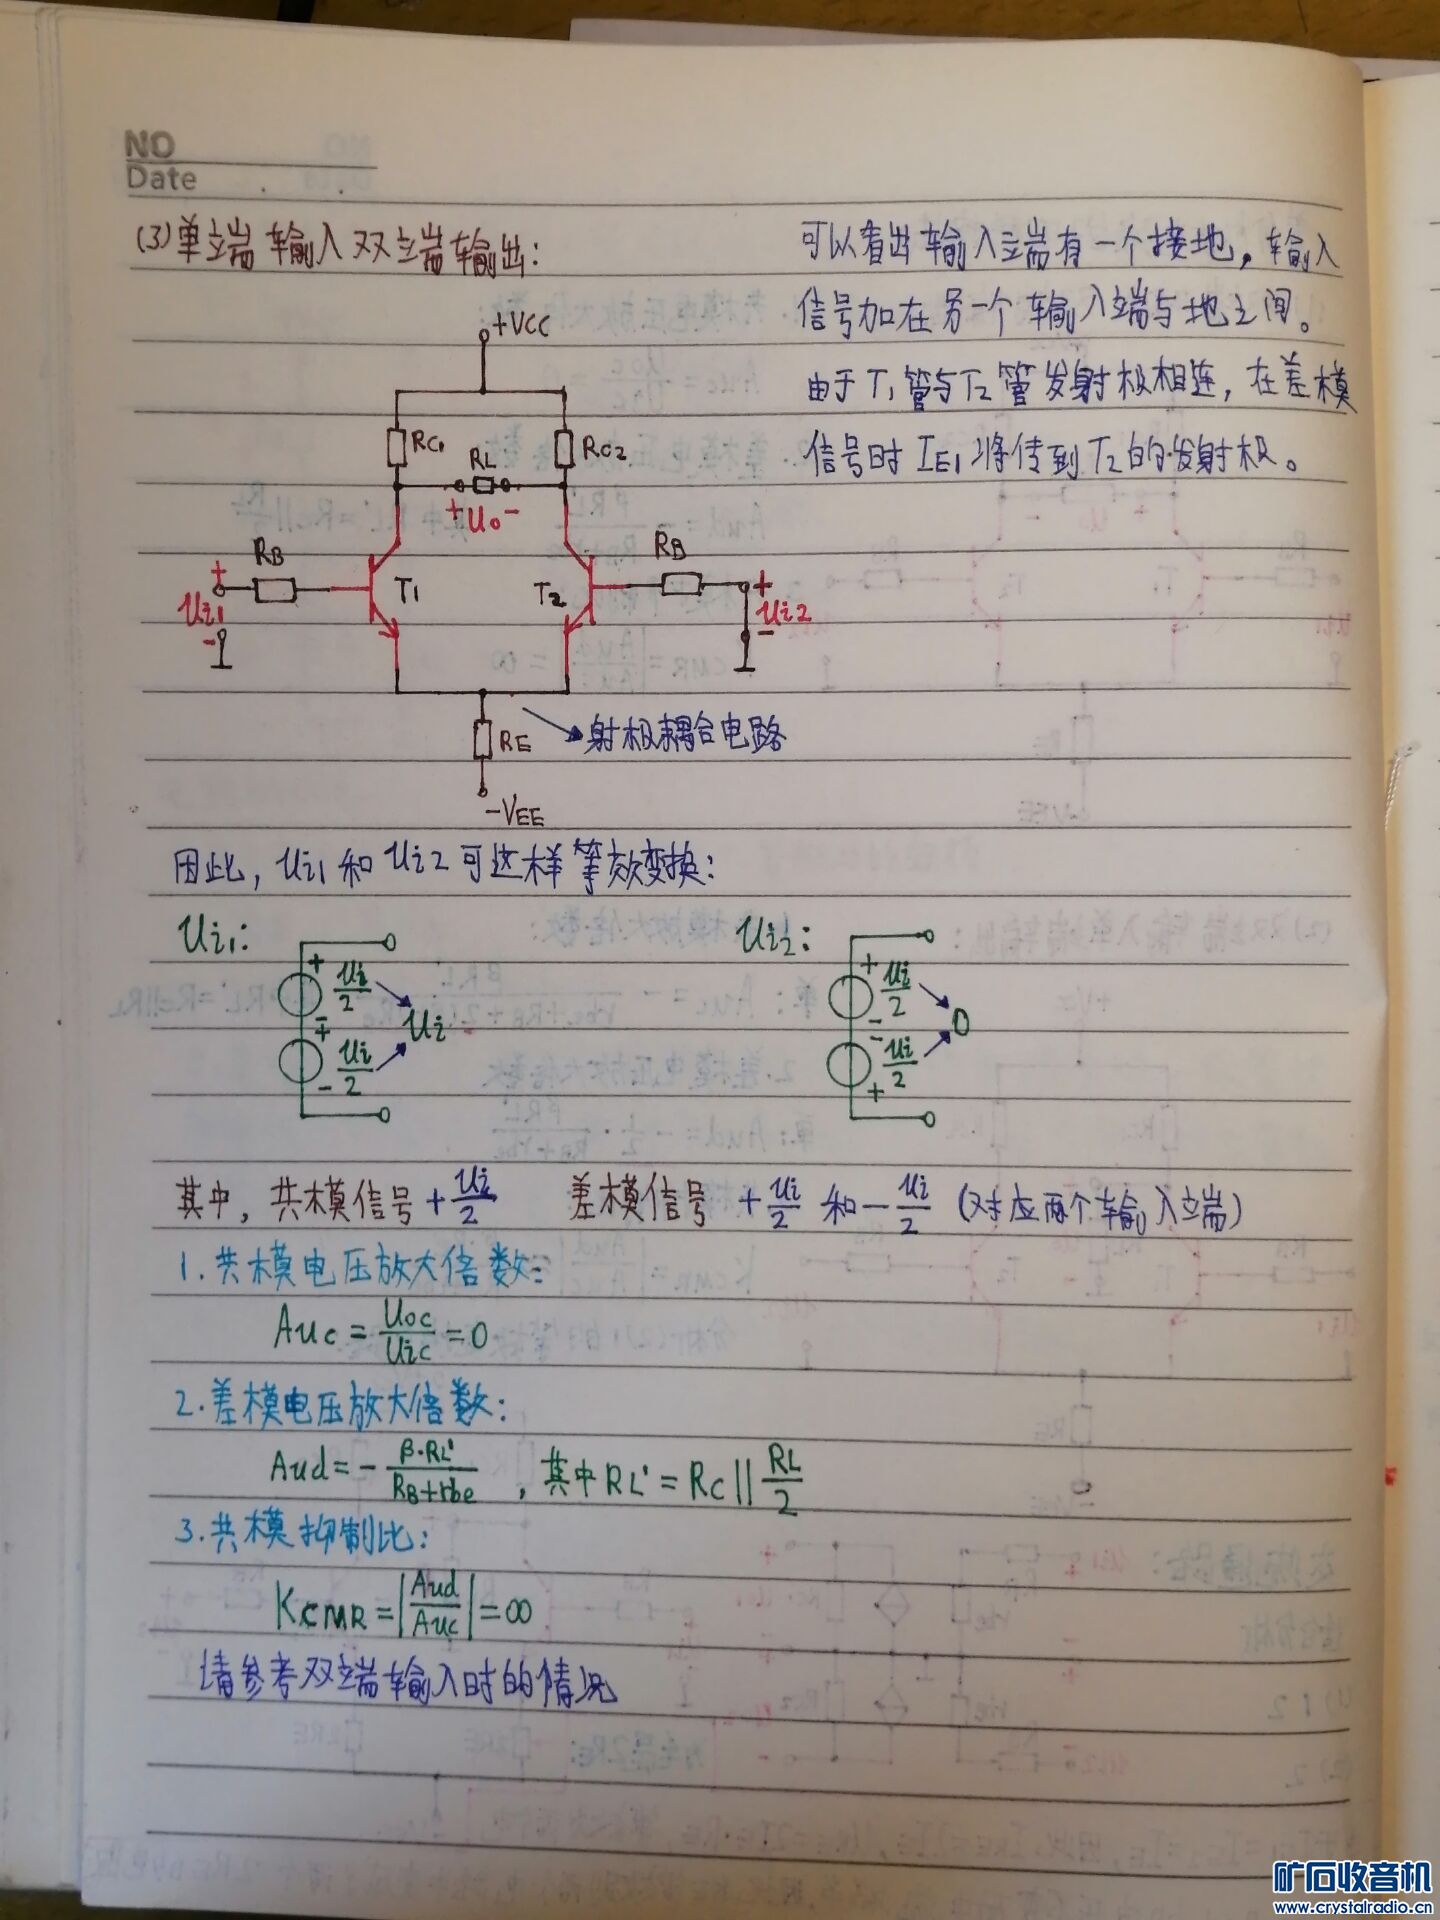 NO
Date
(3)单端输入双端输出:
可以看出输入端有一个接地,输入
信号加在另一个输入端与地之间。
由于T1管与T2管发射极相连,在差模
信号时IE1将传到T2的发射极。
+VCC
RC1
RL
RC2
+Uo-
RB
RB
+
Ui1
-
T1
T2
+
Ui2
-
RE
射极耦合电路
-VEE
因此,Ui1和Ui2可这样等效变换:
Ui1:
+
Ui/2
-
+
Ui/2
-
Ui
Ui2:
+
Ui/2
-
-
Ui/2
+
0
其中,共模信号+Ui/2 差模信号 +Ui/2 和-Ui/2 (对应两个输入端)
1.共模电压放大倍数:
Auc=Uoc/Uic=0
2.差模电压放大倍数:
Aud=-β·RL'/RB+rbe,其中RL'=RC||RL/2
3.共模抑制比:
KCMR=|Aud/Auc|=∞
请参考双端输入时的情况
矿石收音机
www.crystalradio.cn